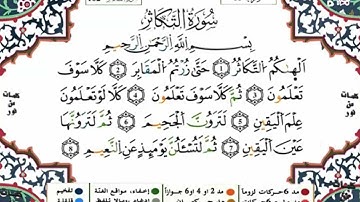 سُورَةُ التَّكَاثُرِ
بِسْمِ اللَّهِ الرَّحْمَٰنِ الرَّحِيمِ
أَلْهَىٰكُمُ التَّكَاثُرُ ۝1 حَتَّىٰ زُرْتُمُ الْمَقَابِرَ ۝2 كَلَّا سَوْفَ
تَعْلَمُونَ ۝3 ثُمَّ كَلَّا سَوْفَ تَعْلَمُونَ ۝4 كَلَّا لَوْ تَعْلَمُونَ
عِلْمَ الْيَقِينِ ۝5 لَتَرَوُنَّ الْجَحِيمَ ۝6 ثُمَّ لَتَرَوُنَّهَا
عَيْنَ الْيَقِينِ ۝7 ثُمَّ لَتُسْأَلُنَّ يَوْمَئِذٍ عَنِ النَّعِيمِ ۝8
كلمات
من
نور
كلمات
من
نور
مد 6 حركات لزوما
مد 2 او 4 او 6 جوازا
إخفاء، ومواقع الغنة
تفخيم
قلقلة